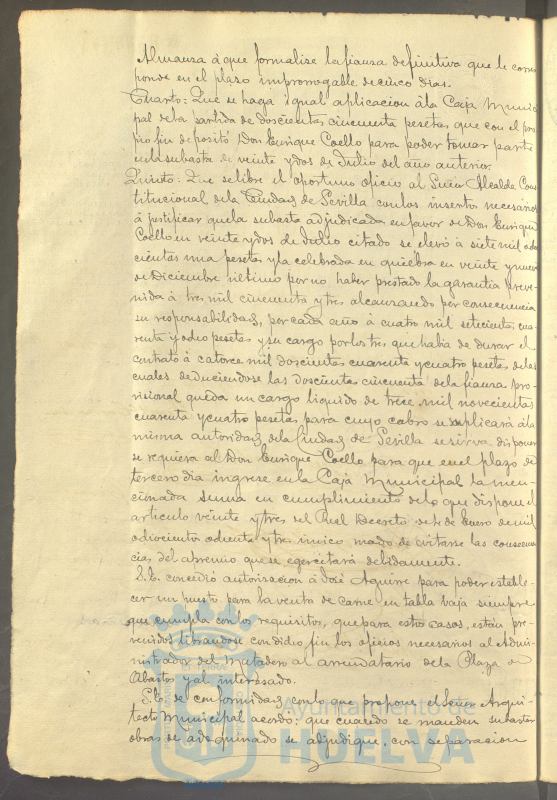 Almansa á que formalise la fianza definitiva que le corres
ponde en el plazo improrrogable de cinco dias.
Cuarto: Que se haga igual aplicacion á la Caja Munici
pal de la partida de doscientas cincuenta pesetas que con el pro
pio fin depositó Don Enrique Coello para poder tomar parte
en la subasta de veinte y dos de Julio del año anterior.
Quinto: Que se libre el oportuno oficio al Señor Alcalde Cons
titucional de la Ciudad de Sevilla con los insertos necesarios
á justificar que la subasta adjudicada en favor de Don Enrique
Coello en veinte y dos de Julio citado se elevó á siete mil ocho
cientas una pesetas y la celebrada en quiebra en veinte y nueve
de Diciembre último por no haber prestado la garantia preve
nida á tres mil cincuenta y tres alcanzando por consecuencia
su responsabilidad, por cada año á cuatro mil setecientas cua
renta y ocho pesetas y su cargo por los tres que habia de durar el
contrato á catorce mil doscientas cuarenta y cuatro pesetas, de las
cuales deduciendose las doscientas cincuenta de la fianza pro
visional queda un cargo liquido de trece mil novecientas
cuarenta y cuatro pesetas para cuyo cobro se suplicará á la
misma autoridad de la Ciudad de Sevilla se sirva disponer
se requiera al Don Enrique Coello para que en el plazo de
tercero dia ingrese en la Caja Municipal la men
cionada suma en cumplimiento de lo que dispone el
articulo veinte y tres del Real Decreto de de Enero de mil
ochociento ochenta y tres unico modo de evitarse las consecuen
cias del apremio que se egercitará debidamente.
S.E. concedió autorizacion á José Aguirre para poder estable
cer un puesto para la venta de carne en tabla baja siempre
que cumpla con los requisitos, que para estos casos, están pre
venidos librandose con dicho fin los oficios necesarios al Admi
nistrador del Matadero al arrendatario de la Plaza de
Abasto y al interesado.
S.E. de conformidad con lo que propone el Señor Arqui
tecto Municipal acordó: que cuando se manden subastar
obras de adoquinado se adjudique, con separacion
Ayuntamiento de
HUELVA